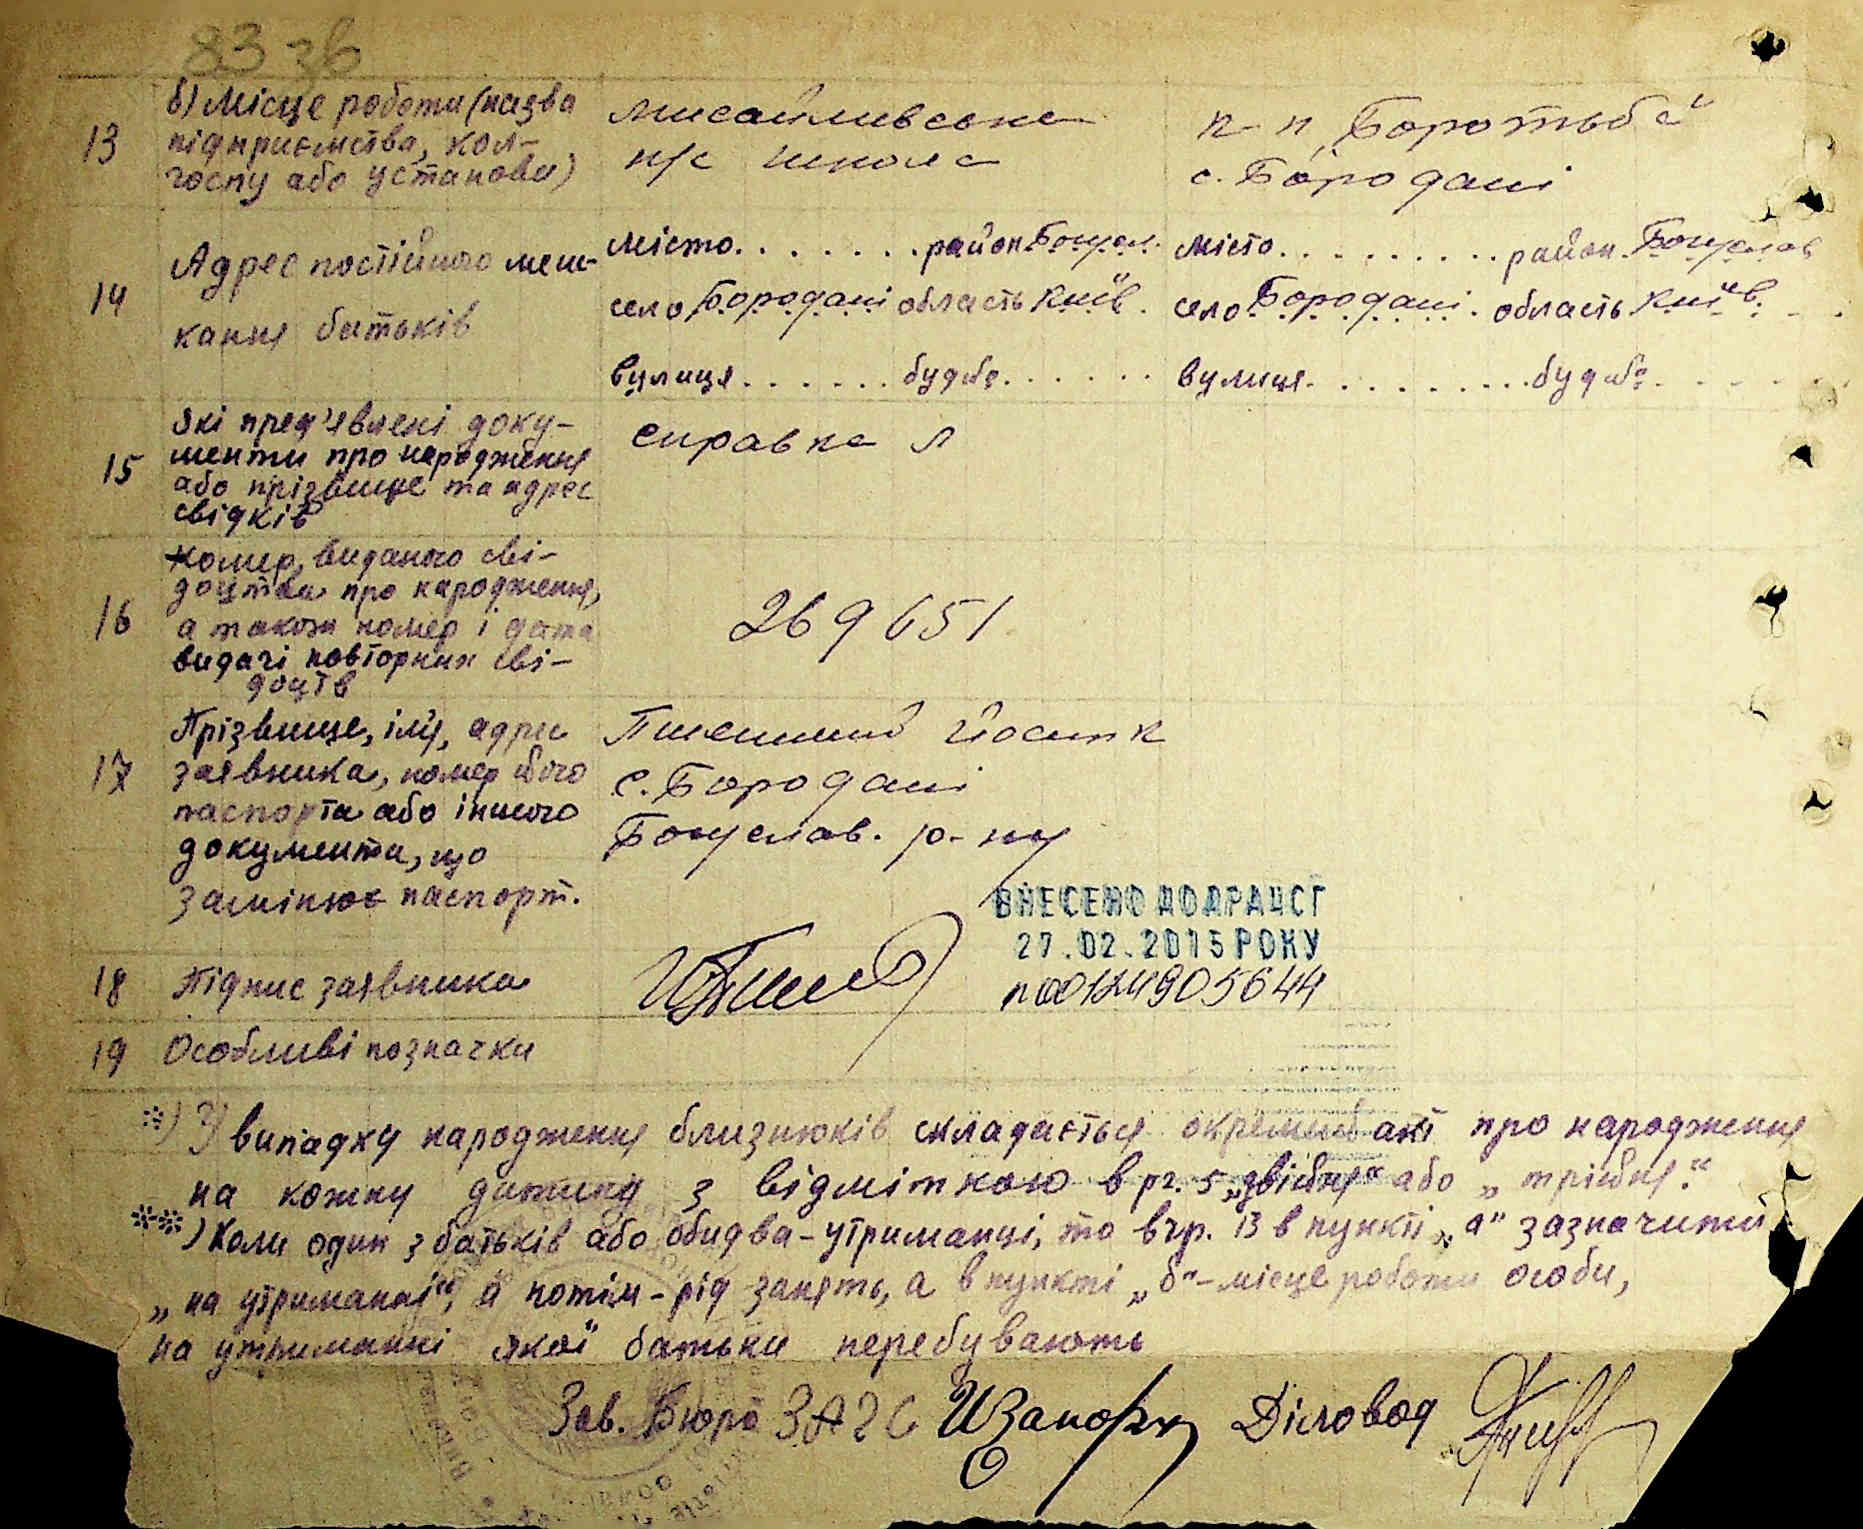 83 зв
13
б) Місце роботи (назва
підприємства, кол-
госпу або установи)
Мисайлівська
н/с школа
к-п „Боротьба"
с. Бородані
14
Адрес постійного меш-
кання батьків
Місто . . . . . . . район Богуслав.
село Бородані область Київ.
вулиця . . . . . . будово . . . . . .
місто . . . . . . . . . район. Богуслав
село Бородані. область Київ.
вулиця . . . . . . . . . будово . . . . . .
15
Які пред'явлені доку-
менти про народження
або прізвище та адрес
свідків
справка
16
Номер виданого сві-
доцтва про народження,
а також номер і дата
видачі повторних сві-
доцтв
269651
17
Прізвище, ім'я, адрес
заявника, номер його
паспорта або іншого
документа, що
замінює паспорт.
Пшеничний Йосип
с. Бородані
Богуслав. р-ну
ВНЕСЕНО ДО ДРАЦСГ
27.02.2015 РОКУ
n 001249905644
18
Підпис заявника
19
Особливі позначки
*) У випадку народження близнюків складається окремий акт про народження
на кожну дитину з відміткою в рг. 5 „двійня" або „трійня".
**) Коли один з батьків або обидва - утриманці, то в гр. 13 в пункті „а" зазначити
„на утриманні", а потім - рід занять, а в пункті „б" - місце роботи особи,
на утриманні якої батьки перебувають
Зав. Бюро ЗАГС
Діловод